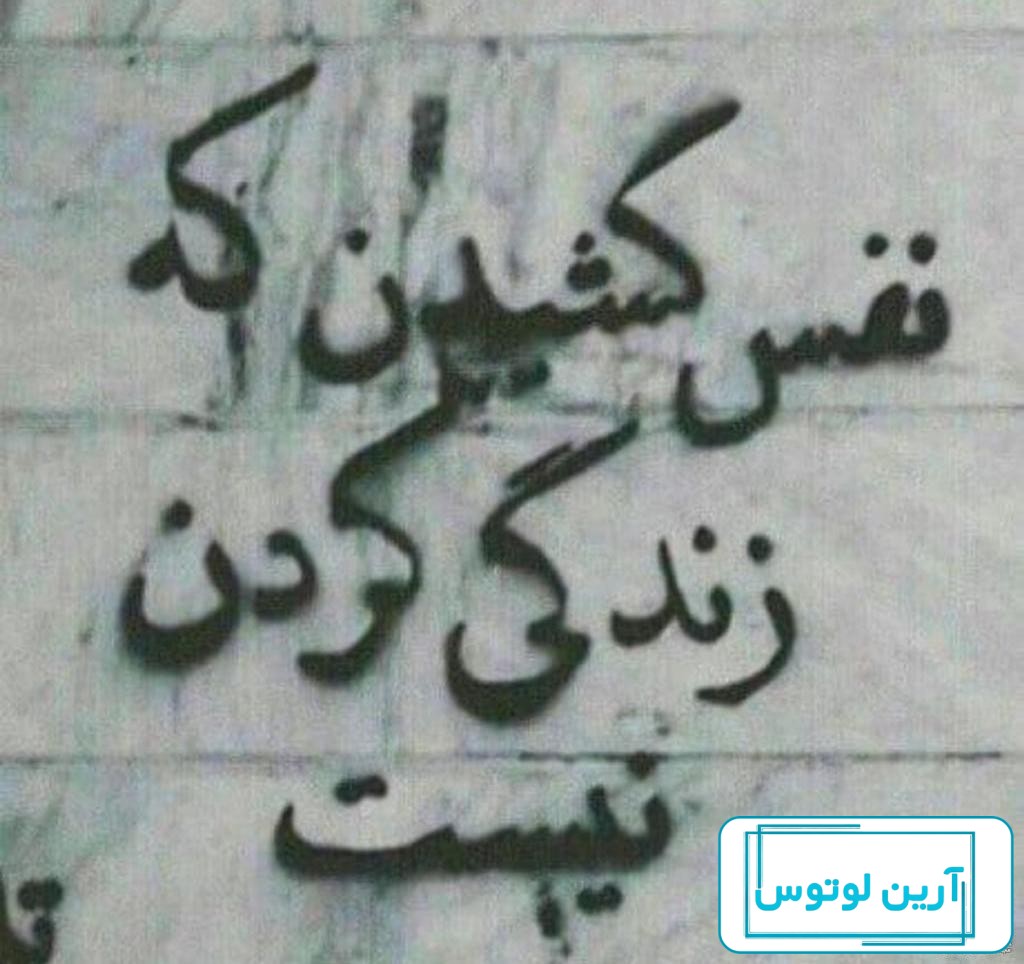 نفس کشیدن که
زندگی کردن
نیست
آرین لوتوس